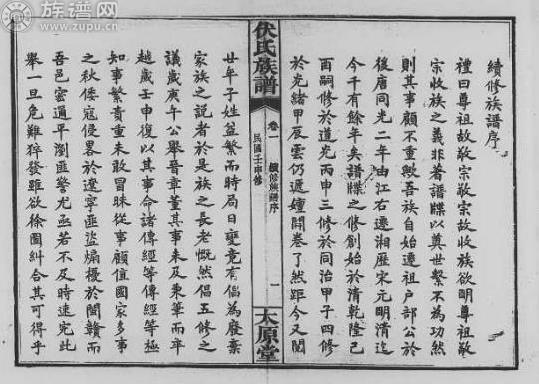 族谱网
www.zupu.cn
續修族譜序
禮曰尊祖故敬宗敬宗故收族欲明尊祖敬
宗收族之義非著譜牒以奠世繫不為功然
則其事顧不重歟吾族自始遷祖户部公於
後唐同光二年由江右遷湘歷宋元明清迄
今千有餘年矣譜牒之修創始於清乾隆己
酉嗣修於道光丙申三修於同治甲子四修
於光緒甲辰雲仍遞嬗開卷了然距今又閱
伏氏族譜
卷一
續修族譜序
民國壬申修
一
太原堂
廿年子姓益繁而時局日變竟有倡為廢棄
家族之說者於是族之長老慨然倡五修之
議歲庚午公舉晉章董其事未及秉筆而卒
越歲壬申復以其事命諸傳經等傳經等極
知事繁責重未敢冒昧從事顧值國家多事
之秋倭寇侵畧於遼寧匪盜煽擾於閩贛而
吾邑密邇平瀏匪警尤亟若不及時速完此
舉一旦危難猝發雖欲徐圖糾合其可得乎